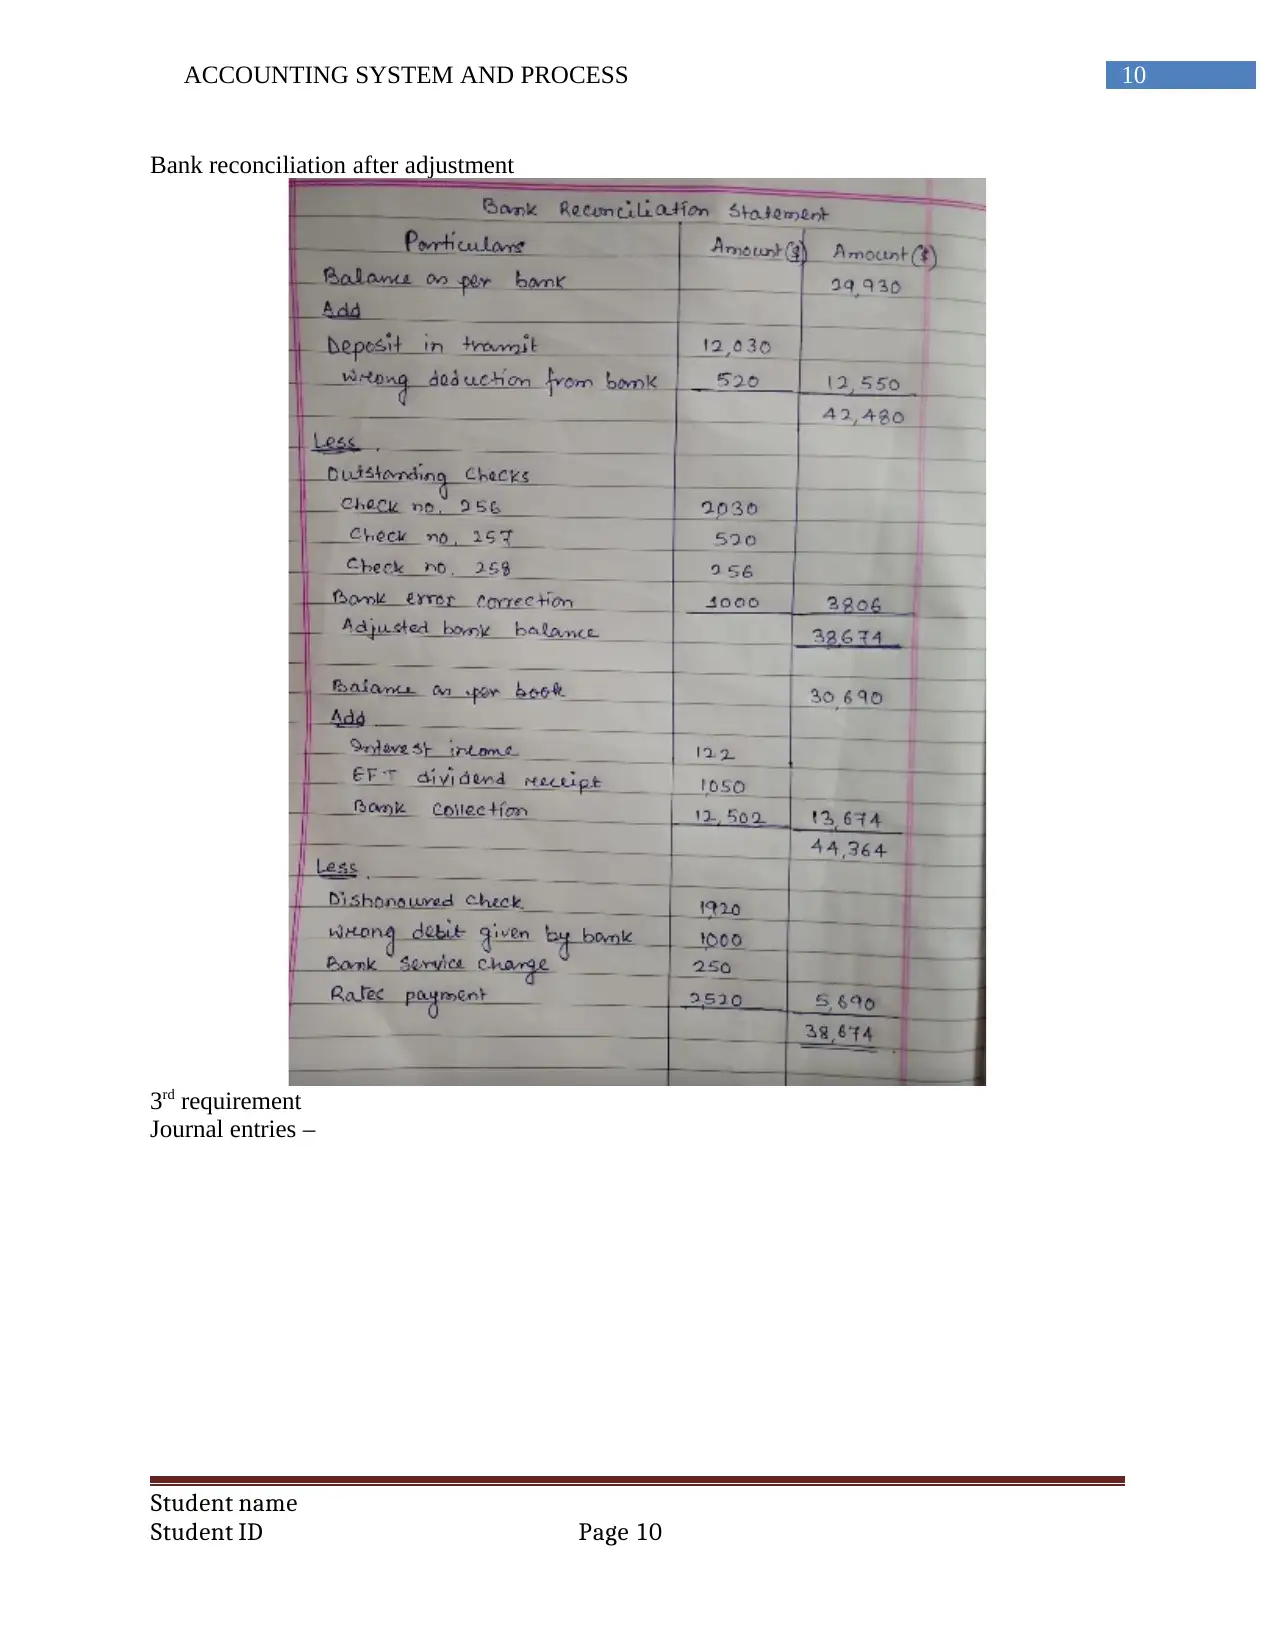 ACCOUNTING SYSTEM AND PROCESS 10
Bank reconciliation after adjustment
Bank Reconciliation Statement
Particulars Amount($) Amount($)
Balance as per bank 29,930
Add
Deposit in transit 12,030
Wrong deduction from bank 520 12,550
42,480
Less.
Outstanding Checks
Check no. 256 2,030
Check no. 257 520
Check no. 258 256
Bank error correction 1000 3806
Adjusted bank balance 38,674
Balance as per book 30,690
Add
Interest income 122
EFT dividend receipt 1,050
Bank Collection 12,502 13,674
44,364
Less.
Dishonoured Check 1920
Wrong debit given by bank 1,000
Bank Service Charge 250
Rates payment 2,520 5,690
38,674
3rd requirement
Journal entries –
Student name
Student ID Page 10